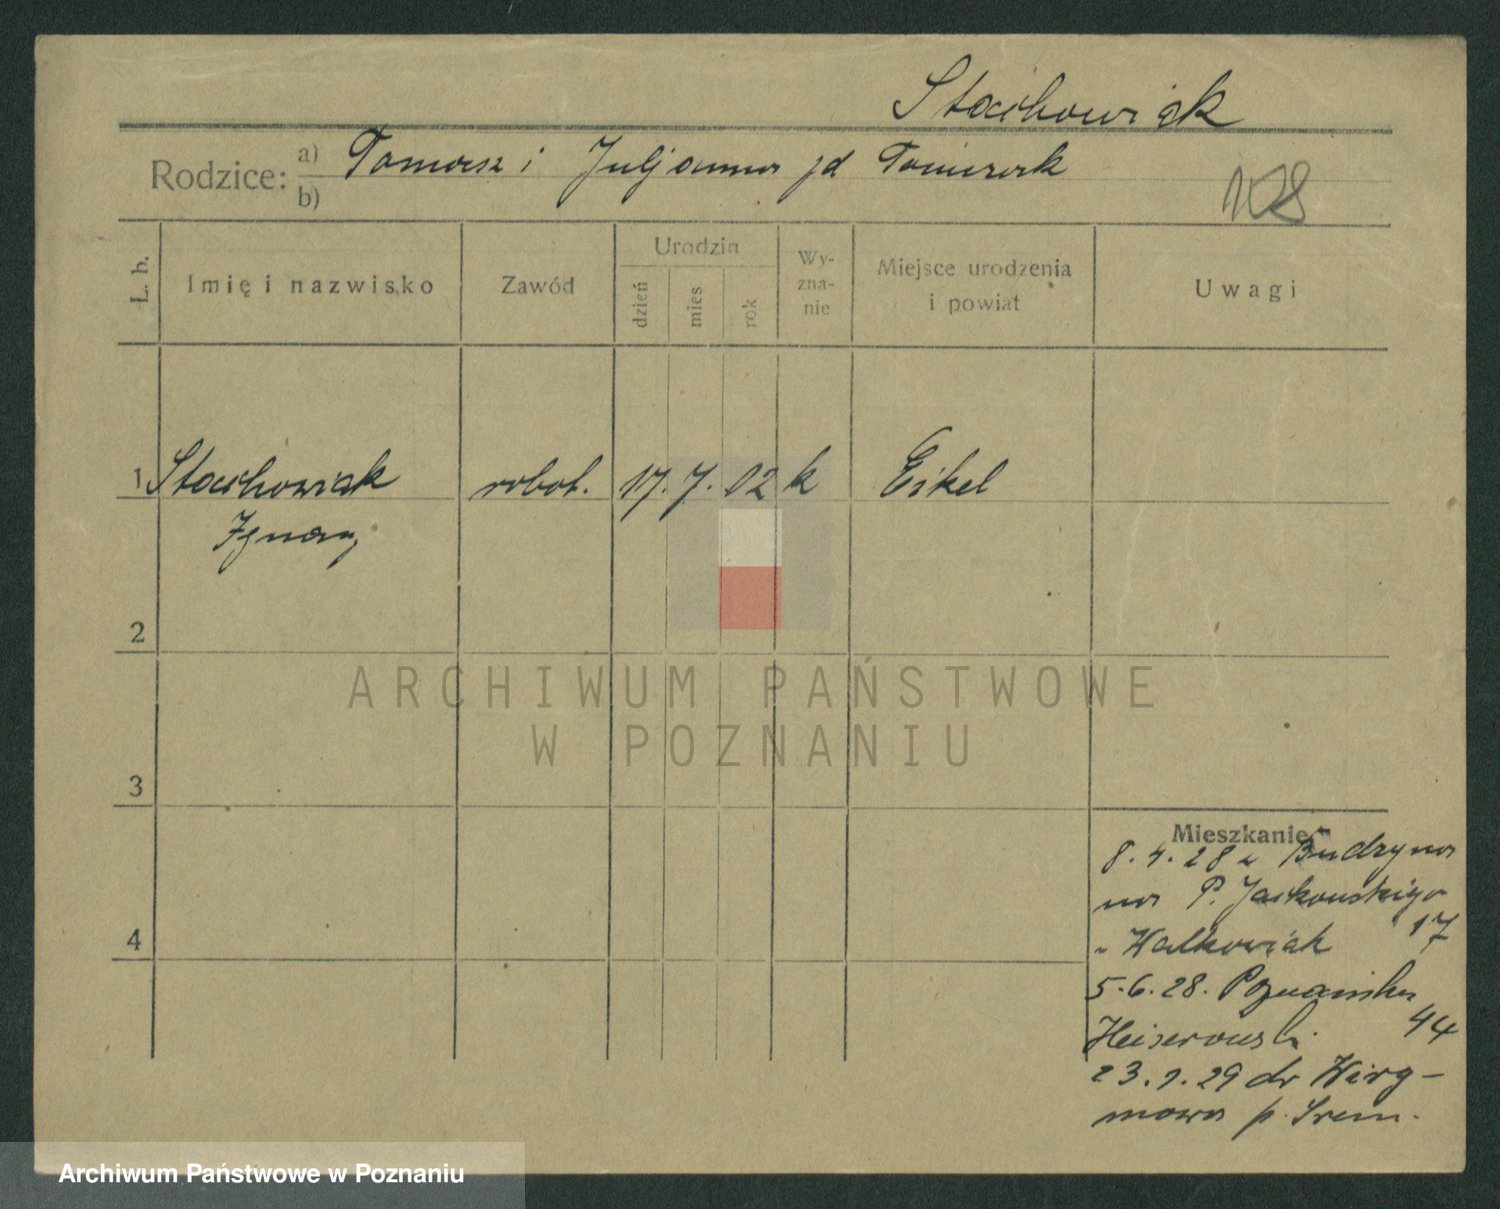 Stachowiak
Rodzice: a) Tomasz i Juljanna zd Tomczak
b)
128
L. b.
Imię i nazwisko
Zawód
Urodzin
dzień
mies
rok
Wy-
zna-
nie
Miejsce urodzenia
i powiat
Uwagi
1 Stachowiak robot. 17. 7. 02 k Eikel
Ignacy
2
ARCHIWUM PAŃSTWOWE
W POZNANIU
3
Mieszkanie
8. 4. 28 z Budzyna
na P. Jackowskiego
17
" Walkowiak
4
5.6.28. Poznańska
44
Heiserowski
23.1.29 do
p. Śrem.
Archiwum Państwowe w Poznaniu